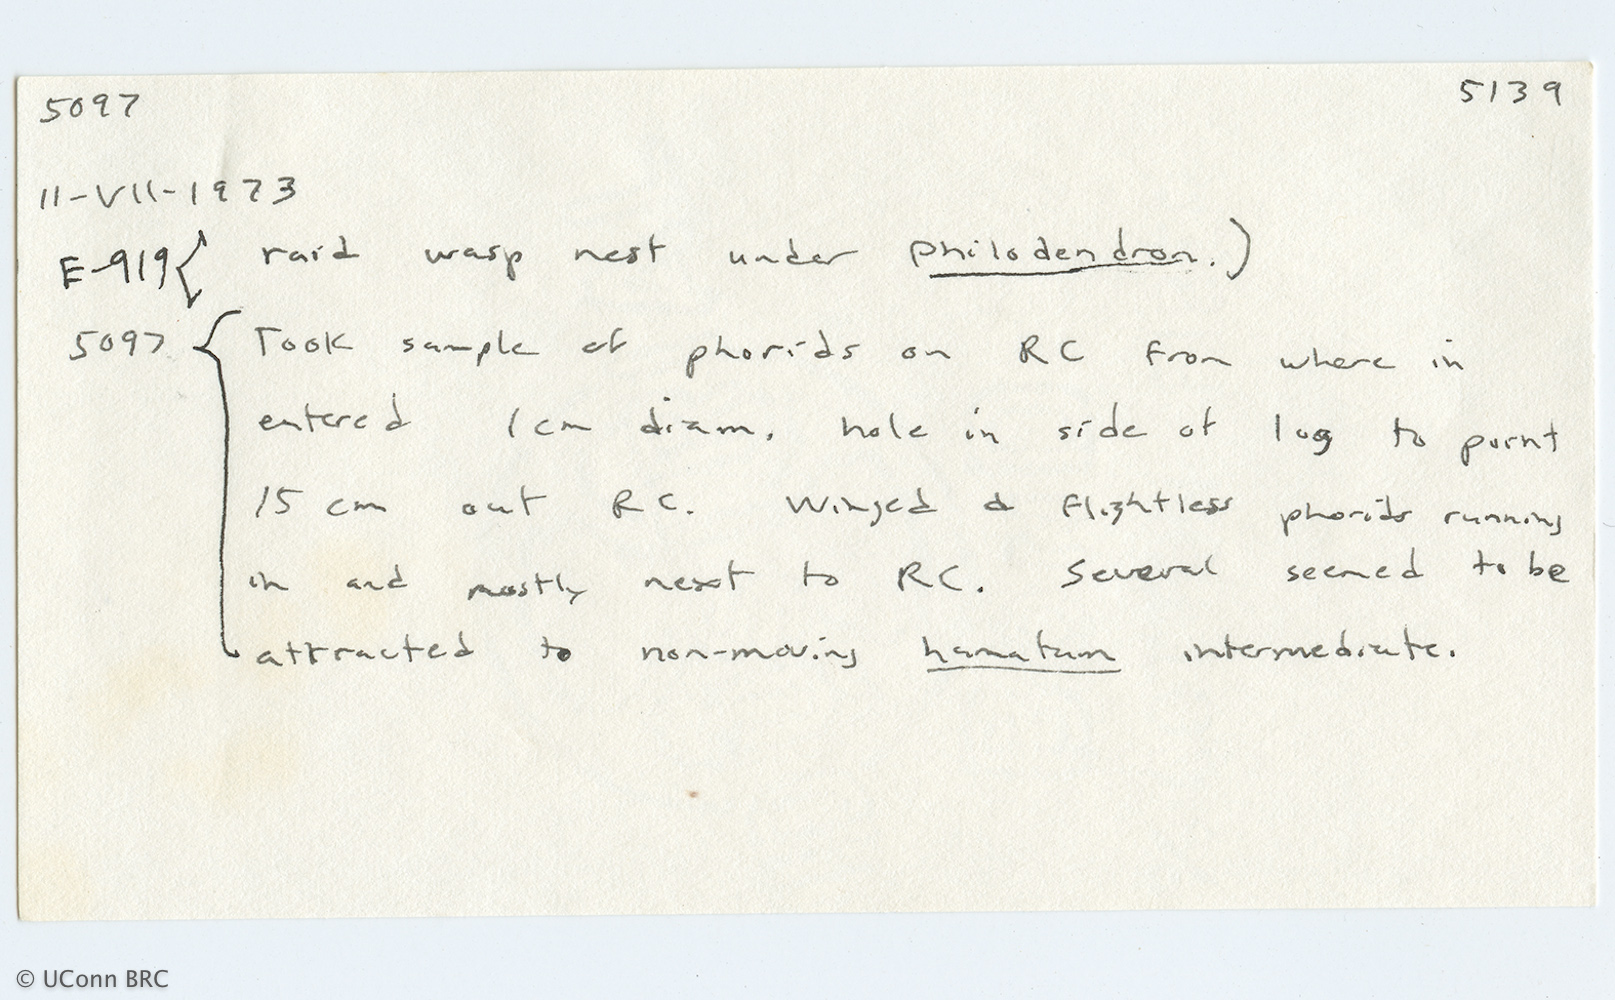 5097 5139
11-VII-1973
E-919 { raid wasp nest under philodendron.)
5097 { Took sample of phorids on RC from where in
entered 1 cm diam. hole in side of log to point
15 cm out RC. Winged & flightless phorids running
in and mostly next to RC. Several seemed to be
attracted to non-moving hamatum intermediate.
© UConn BRC